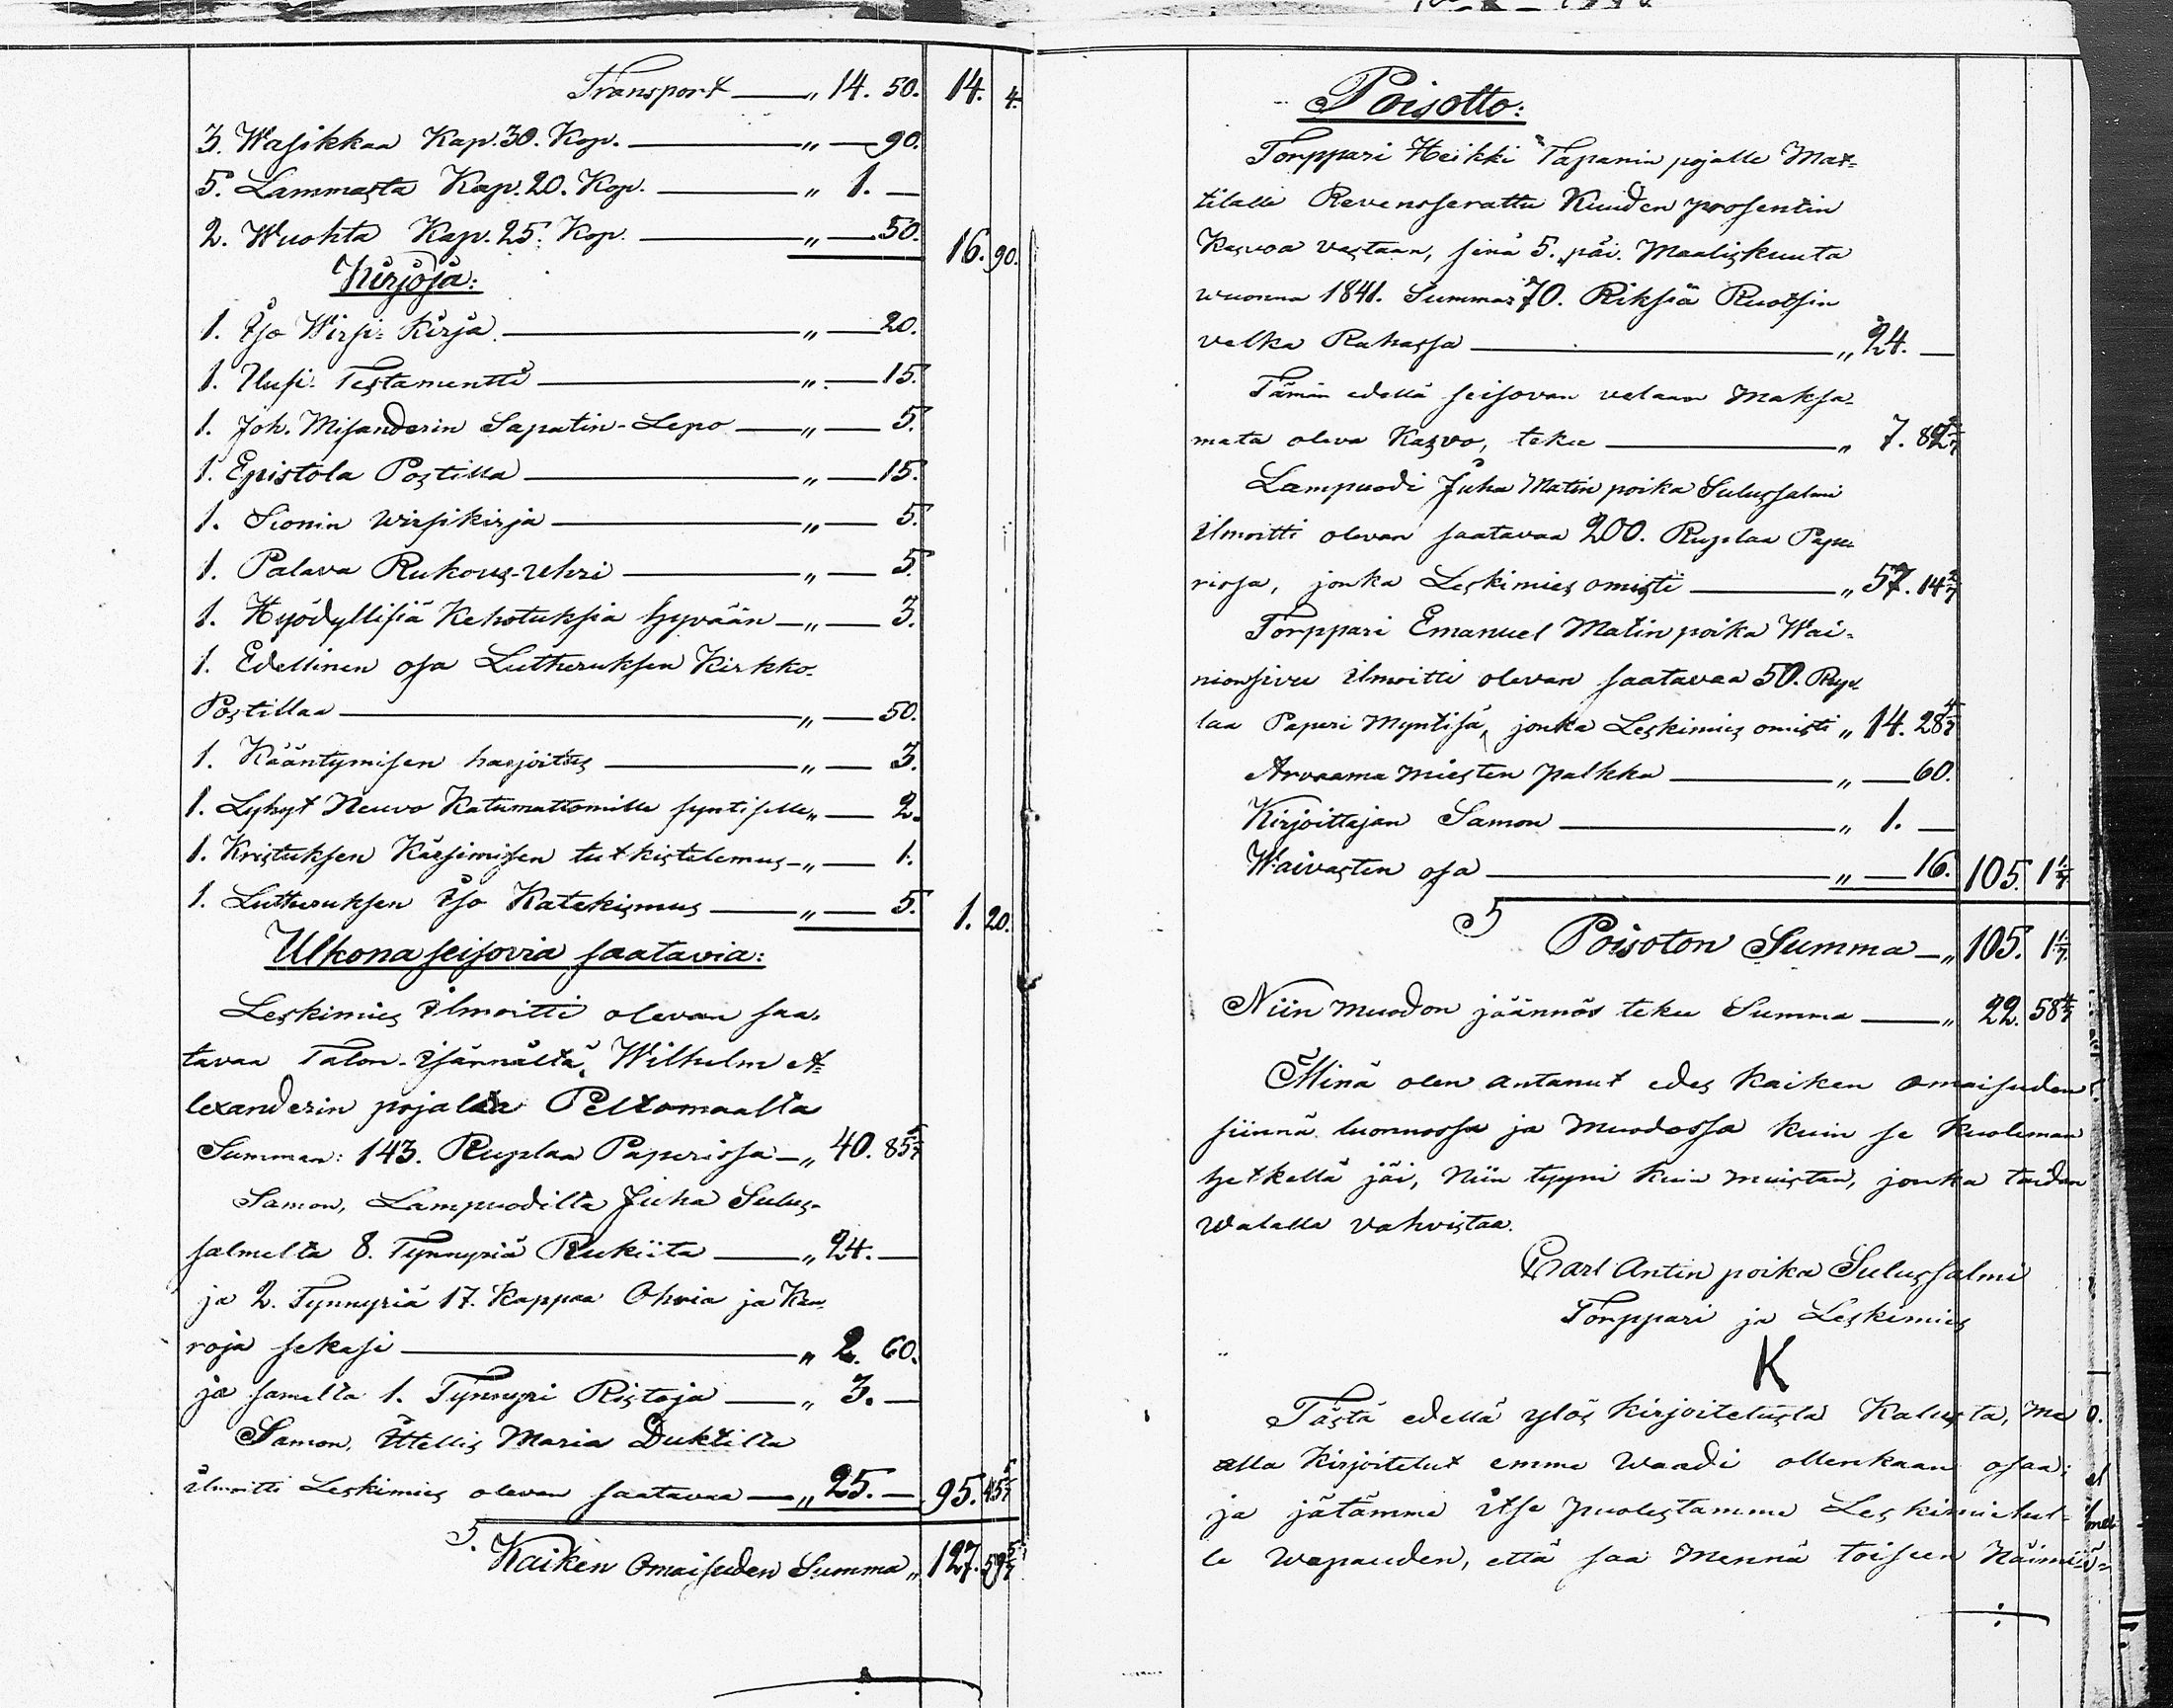 Transport — „ 14. 50. 14. 4.
3. Wasikkaa Kap. 30. Kop. — „ — 90.
5. Lammasta Kap. 20. Kop. — „ 1. —
2. Wuohta Kap. 25. Kop. — „ — 50. 16. 90.
Kirjoja:
1. Iso Wirsi-Kirja — „ — 20.
1. Uusi Testamentti — „ — 15.
1. Joh. Misanderin Sapatin-Lepo — „ — 5.
1. Epistola Postilla — „ — 15.
1. Sionin wirsikirja — „ — 5.
1. Palava Rukous-Uhri — „ — 5.
1. Hyödyllisiä Kehotuksia hyvään — „ — 3.
1. Edellinen osa Lutheruksen Kirkko-
Postillaa — „ — 50.
1. Kääntymisen harjoitus — „ — 3.
1. Lyhyt Neuvo Katumattomille syntiselle „ — 2.
1. Kristuksen Kärsimisen tutkistelemus — „ — 1.
1. Lutheruksen Iso Katekismus — „ — 5. 1. 20.
Ulkona seisovia saatavia:
Leskimies ilmoitti olevan saa-
tavaa Talon-isännältä, Wilhelm A-
lexanderin pojalta Peltomaalta
Summan: 143. Ruplaa Paperissa — „ 40. 85 5/7
Samon, Lampuodilta Juha Sulus-
salmelta 8. Tynnyriä Rukiita — „ 24. —
ja 2. Tynnyriä 17. Kappaa Ohria ja Kau-
roja sekasi — „ 2. 60.
ja samalta 1. Tynnyri Ristoja — „ 3. —
Samon, Itellis Maria Duktilta
ilmoitti Leskimies olevan saatavaa — „ 25. — 95. 45 5/7
S. Kaiken Omaisuden Summa „ 127. 59 5/7
Poisotto:
Torppari Heikki Tapanin pojalle Mat-
tilalle Revensserattu Kuuden prosentin
Kasvoa vastaan, sinä 5. päi. Maaliskuuta
wuonna 1841. Summa 70. Riksiä Ruotsin
velka Rahassa — „ 24. —
Tämän edellä seisovan velaan Maksa-
mata oleva Kasvo, tekee — „ 7. 82 2/7
Lampuodi Juha Matin poika Sulussalmi
ilmoitti olevan saatavaa 200. Ruplaa Pape-
rissa, jonka Leskimies omisti — „ 57. 14 2/7
Torppari Emanuel Matin poika Wai-
nionsivu ilmoitti olevan saatavaa 50. Rup-
laa Paperi Myntisä, jonka Leskimies omisti „ 14. 28 4/7
Arvaama miesten palkka — „ — 60.
Kirjoittajan Samon — „ 1. —
Waivasten osa — „ — 16. 105. 1 1/7
S Poisoton Summa — „ 105. 1 1/7
Niin muodon jäännös tekee Summa — „ 22. 58 4/7
Minä olen antanut edes kaiken omaisuden
siinnä luonnossa ja Muodossa kuin se Kuoleman
hetkellä jäi, Niin tyyni kuin muistan, jonka taidan
Walalla vahvistaa.
Carl Antin poika Sulussalmi
Torppari ja Leskimies
K
Tästä edellä ylös kirjoitetusta Kalusta, me
alla Kirjoitetut emme Waadi ollenkaan osaa;
ja jätämme itse puolestamme Leskimiehel-
le wapauden, että saa Mennä toiseen Näimi-